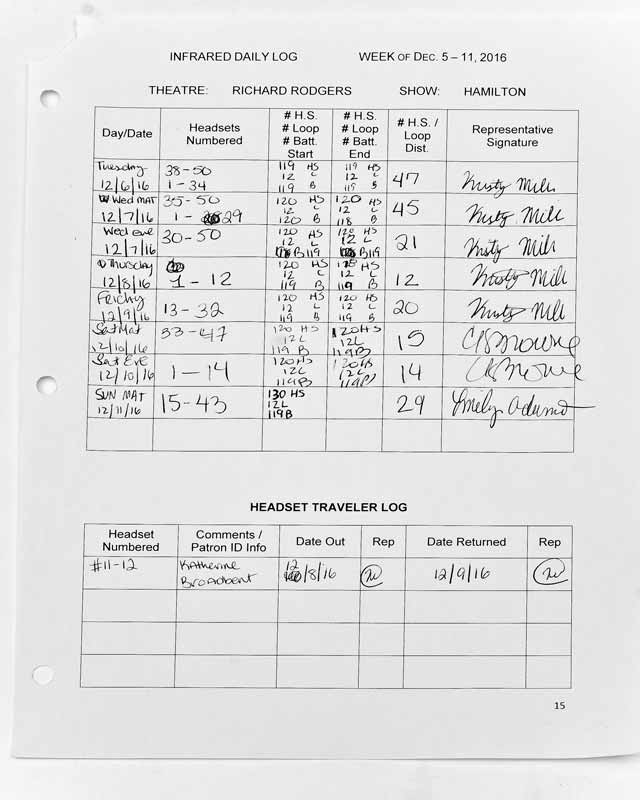 INFRARED DAILY LOG WEEK OF DEC. 5 – 11, 2016
THEATRE: RICHARD RODGERS SHOW: HAMILTON
Day/Date Headsets Numbered # H.S. # Loop # Batt. Start # H.S. # Loop # Batt. End # H.S. / Loop Dist. Representative Signature
Tuesday 12/6/16 38-50 1-34 119 HS 12 L 119 B 119 HS 12 L 119 B 47 Kristy Mill
Wed MAT 12/7/16 35-50 1- 29 120 HS 12 L 120 B 120 HS 12 L 118 B 45 Kristy Mill
Wed eve 12/7/16 30-50 120 HS 12 L B 120 HS 12 L B119 21 Kristy Mill
Thursday 12/8/16 1-12 120 HS 12 L 119 B HS 12 L 119 B 12 Kristy Mill
Friday 12/9/16 13-32 120 HS 12 L 119 B 120 HS 12 L 119 B 20 Kristy Mill
Sat Mat 12/10/16 33-47 120 HS 12L 119 B 120HS 12L 119B 15 CBrowne
Sat Eve 12/10/16 1-14 120HS 12L 119B 120HS 12L 119B 14 CBrowne
SUN MAT 12/11/16 15-43 130 HS 12L 119B 29 Emily
HEADSET TRAVELER LOG
Headset Numbered Comments / Patron ID Info Date Out Rep Date Returned Rep
#11-12 Katherine Broadbent 12/8/16 12/9/16
15